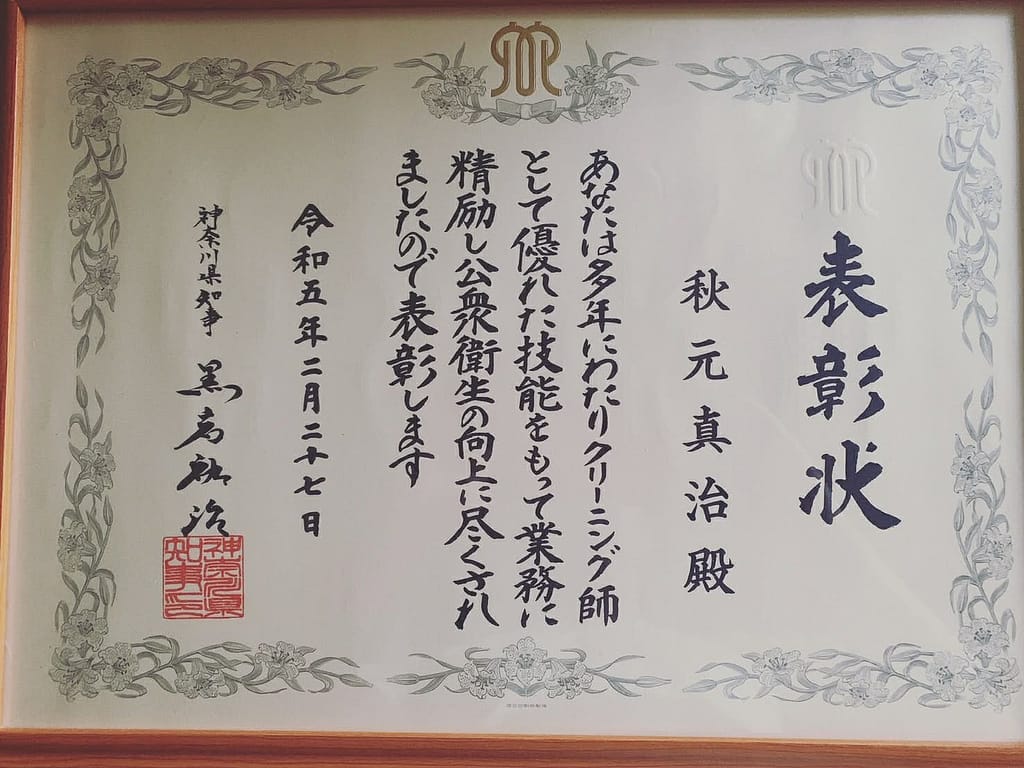 表彰状
秋元真治殿
あなたは多年にわたりクリーニング師
として優れた技能をもって業務に
精励し公衆衛生の向上に尽くされ
ましたので表彰します
令和五年二月二十七日
神奈川県知事 黒岩祐治
神奈川県
知事之印